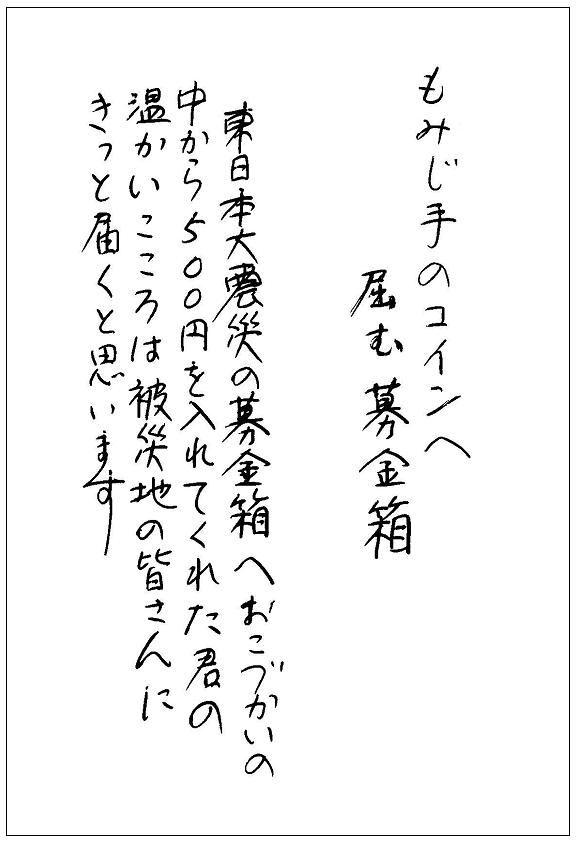 もみじ手のコインへ
屈む募金箱
東日本大震災の募金箱へおこづかいの
中から500円を入れてくれた君の
温かいこころは被災地の皆さんに
きっと届くと思います